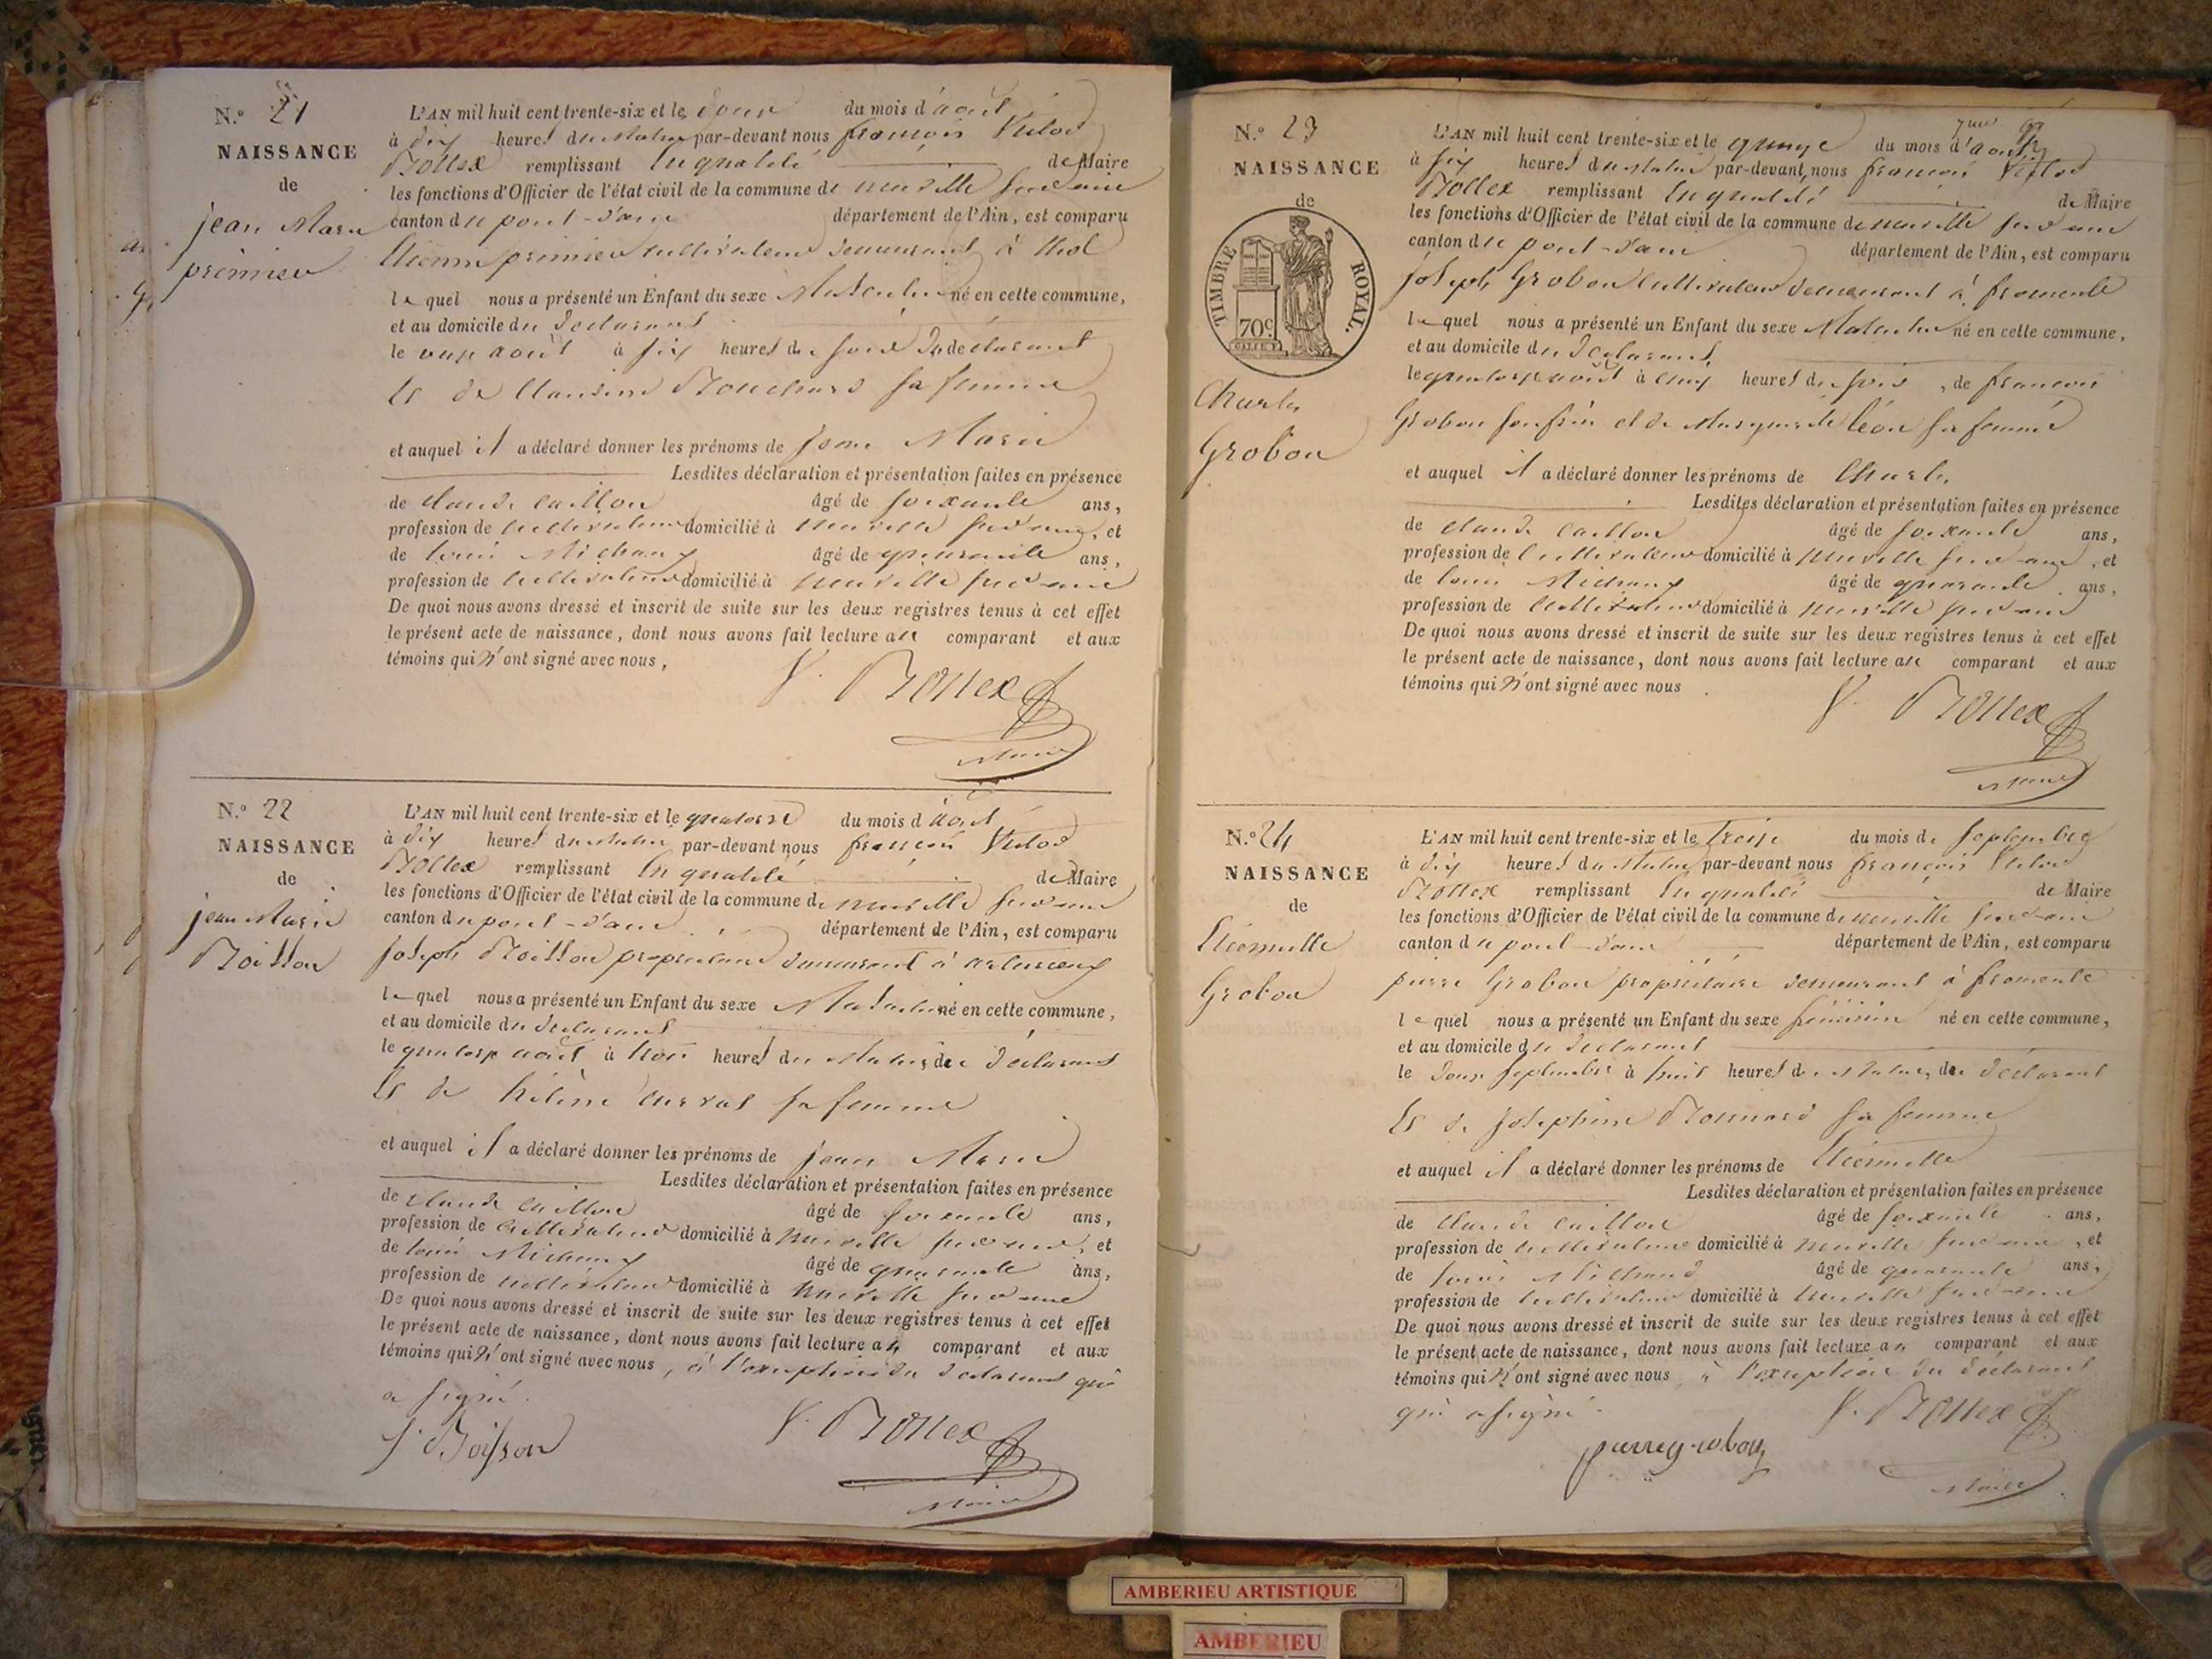 N.° 21
NAISSANCE
de
jean Marie
premier
L'AN mil huit cent trente-six et le douze du mois d'août
à dix heures du matin par-devant nous françois Victor
Bollex remplissant en qualité de Maire
les fonctions d'Officier de l'état civil de la commune de neuville sur ain
canton du pont-d'ain département de l'Ain, est comparu
Etienne premier cultivateur demeurant à thol
lequel nous a présenté un Enfant du sexe Masculin né en cette commune,
et au domicile du declarant
le onze août à six heures du soir du declarant
Et de Claudine Bouchard sa femme
et auquel il a déclaré donner les prénoms de Jean Marie
Lesdites déclaration et présentation faites en présence
de claude caillon âgé de soixante ans,
profession de cultivateur domicilié à neuville sur ain, et
de louis Michaud âgé de quarante ans,
profession de cultivateur domicilié à neuville sur ain
De quoi nous avons dressé et inscrit de suite sur les deux registres tenus à cet effet
le présent acte de naissance, dont nous avons fait lecture au comparant et aux
témoins qui n'ont signé avec nous,
V. Bollex
Maire
N.° 22
NAISSANCE
de
jean Marie
Boisson
L'AN mil huit cent trente-six et le quatorze du mois d'août
à dix heures du matin par-devant nous françois Victor
Bollex remplissant en qualité de Maire
les fonctions d'Officier de l'état civil de la commune de neuville sur ain
canton du pont-d'ain département de l'Ain, est comparu
joseph Boisson proprietaire demeurant à
lequel nous a présenté un Enfant du sexe Masculin né en cette commune,
et au domicile du declarant
le quatorze août à trois heures du Matin, du declarant
Et de hélène sa femme
et auquel il a déclaré donner les prénoms de jean Marie
Lesdites déclaration et présentation faites en présence
de claude caillon âgé de soixante ans,
profession de cultivateur domicilié à neuville sur ain, et
de louis Michaud âgé de quarante ans,
profession de cultivateur domicilié à neuville sur ain
De quoi nous avons dressé et inscrit de suite sur les deux registres tenus à cet effet
le présent acte de naissance, dont nous avons fait lecture au comparant et aux
témoins qui n'ont signé avec nous, à l'exception du declarant qui
a signé.
J. Boisson
V. Bollex
Maire
N.° 23
NAISSANCE
de
TIMBRE ROYAL.
70c
Charles
Grobon
L'AN mil huit cent trente-six et le quinze du mois d'août
à six heures du matin par-devant nous françois Victor
Bollex remplissant en qualité de Maire
les fonctions d'Officier de l'état civil de la commune de neuville sur ain
canton du pont-d'ain département de l'Ain, est comparu
joseph Grobon cultivateur demeurant à fromente
lequel nous a présenté un Enfant du sexe Masculin né en cette commune,
et au domicile du declarant
le quatorze août à cinq heures du soir, de francois
Grobon son frère et de Marguerite léon sa femme
et auquel il a déclaré donner les prénoms de Charles
Lesdites déclaration et présentation faites en présence
de claude caillon âgé de soixante ans,
profession de cultivateur domicilié à neuville sur ain, et
de louis Michaud âgé de quarante ans,
profession de cultivateur domicilié à neuville sur ain
De quoi nous avons dressé et inscrit de suite sur les deux registres tenus à cet effet
le présent acte de naissance, dont nous avons fait lecture au comparant et aux
témoins qui n'ont signé avec nous
V. Bollex
Maire
N.° 24
NAISSANCE
de
Etiennette
Grobon
L'AN mil huit cent trente-six et le Treize du mois de Septembre
à dix heures du Matin par-devant nous françois Victor
Bollex remplissant en qualité de Maire
les fonctions d'Officier de l'état civil de la commune de neuville sur ain
canton du pont-d'ain département de l'Ain, est comparu
pierre Grobon propriétaire demeurant à fromente
lequel nous a présenté un Enfant du sexe féminin né en cette commune,
et au domicile du declarant
le douze septembre à huit heures du Matin, du déclarant
Et de joséphine Bonnard sa femme
et auquel il a déclaré donner les prénoms de Etiennette
Lesdites déclaration et présentation faites en présence
de claude caillon âgé de soixante ans,
profession de cultivateur domicilié à neuville sur ain, et
de louis Michaud âgé de quarante ans,
profession de cultivateur domicilié à neuville sur ain
De quoi nous avons dressé et inscrit de suite sur les deux registres tenus à cet effet
le présent acte de naissance, dont nous avons fait lecture au comparant et aux
témoins qui n'ont signé avec nous, à l'exception du declarant
qui a signé.
V. Bollex
pierre grobon
Maire
AMBERIEU ARTISTIQUE
AMBERIEU